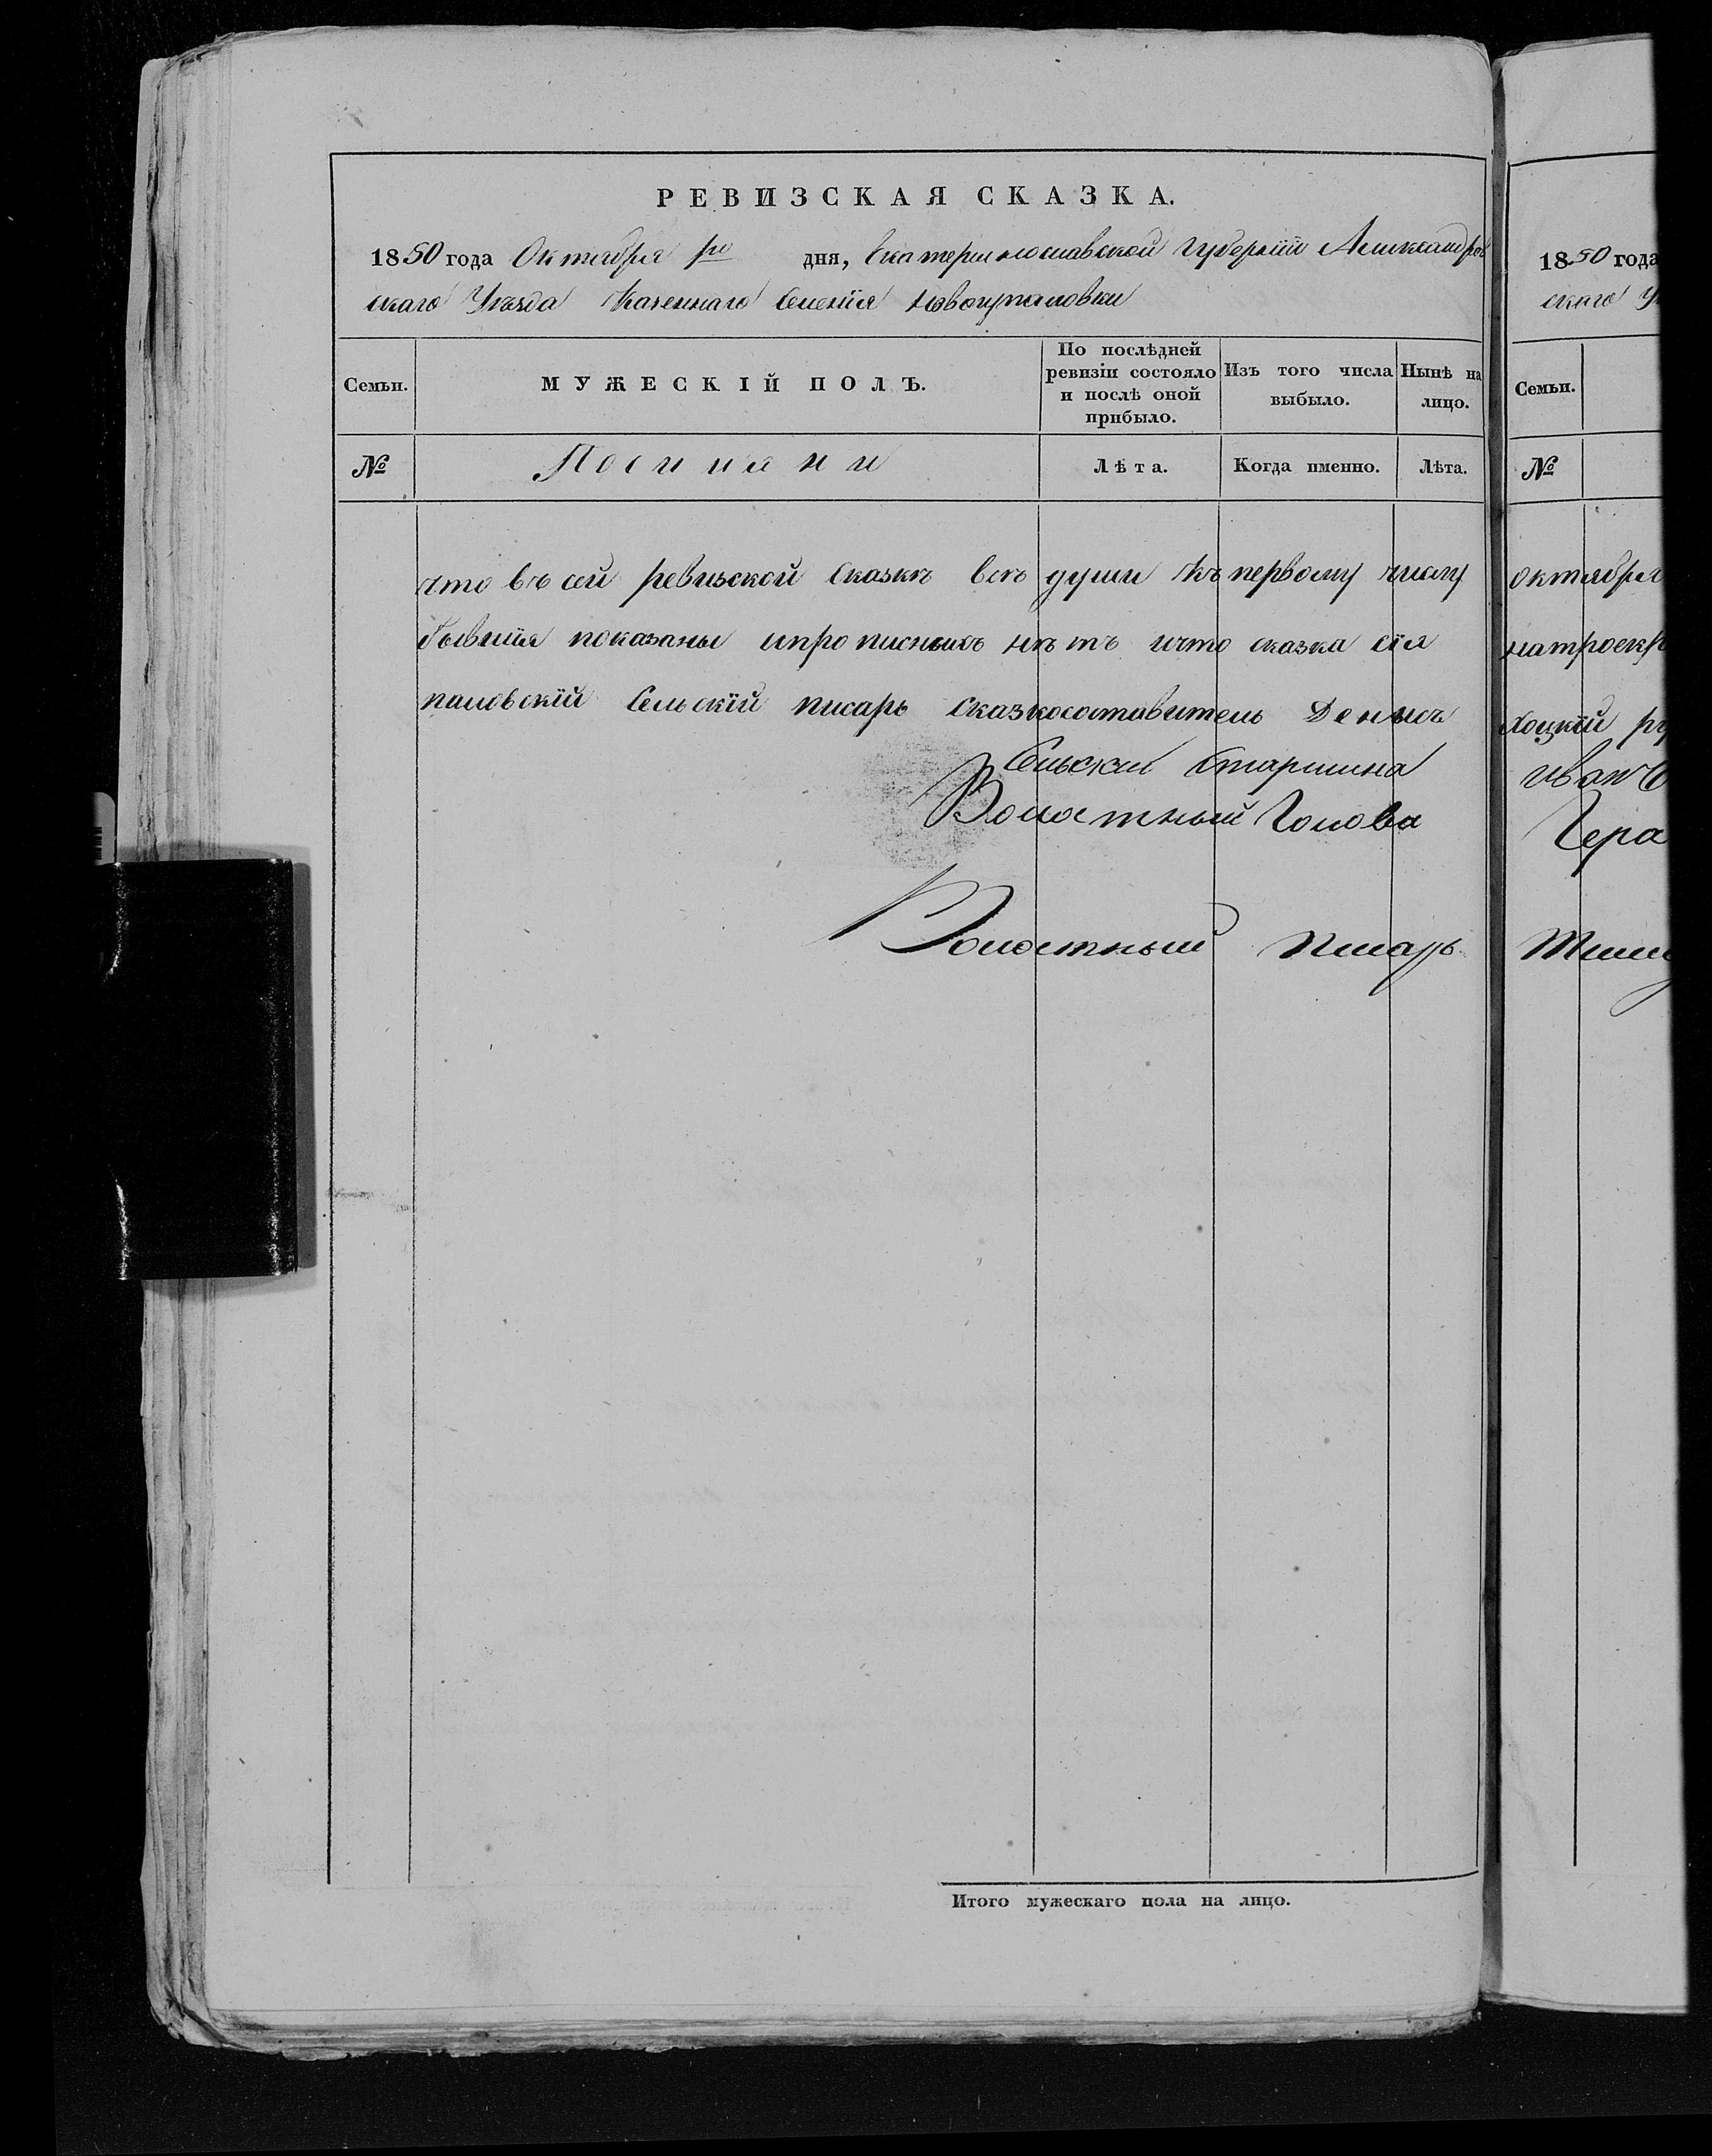 РЕВИЗСКАЯ СКАЗКА.
1850 года Октября дня, Екатеринославской Губерніи Александров
скаго Уѣзда Казеннаго Селенія Новогупаловки
Семьи.
МУЖЕСКІЙ ПОЛЪ.
По послѣдней ревизіи состояло и послѣ оной прибыло.
Изъ того числа выбыло.
Нынѣ на лицо.
№
Поселяни
Лѣта.
Когда именно.
Лѣта.
что въ сей ревизской Сказкѣ всѣ души къ первому числу
бывшія показаны ипрописныхъ нѣтъ ичто сказка сія
паловскій Сельскій писарь Сказкосоставитель Денисъ
Сельский Старшина
Волостный Голова
Волостный Писарь
Итого мужескаго пола на лицо.
1850 года
скаго У
Семьи.
№
октября
натроекр
хоцкій ру
Иван С
Гера